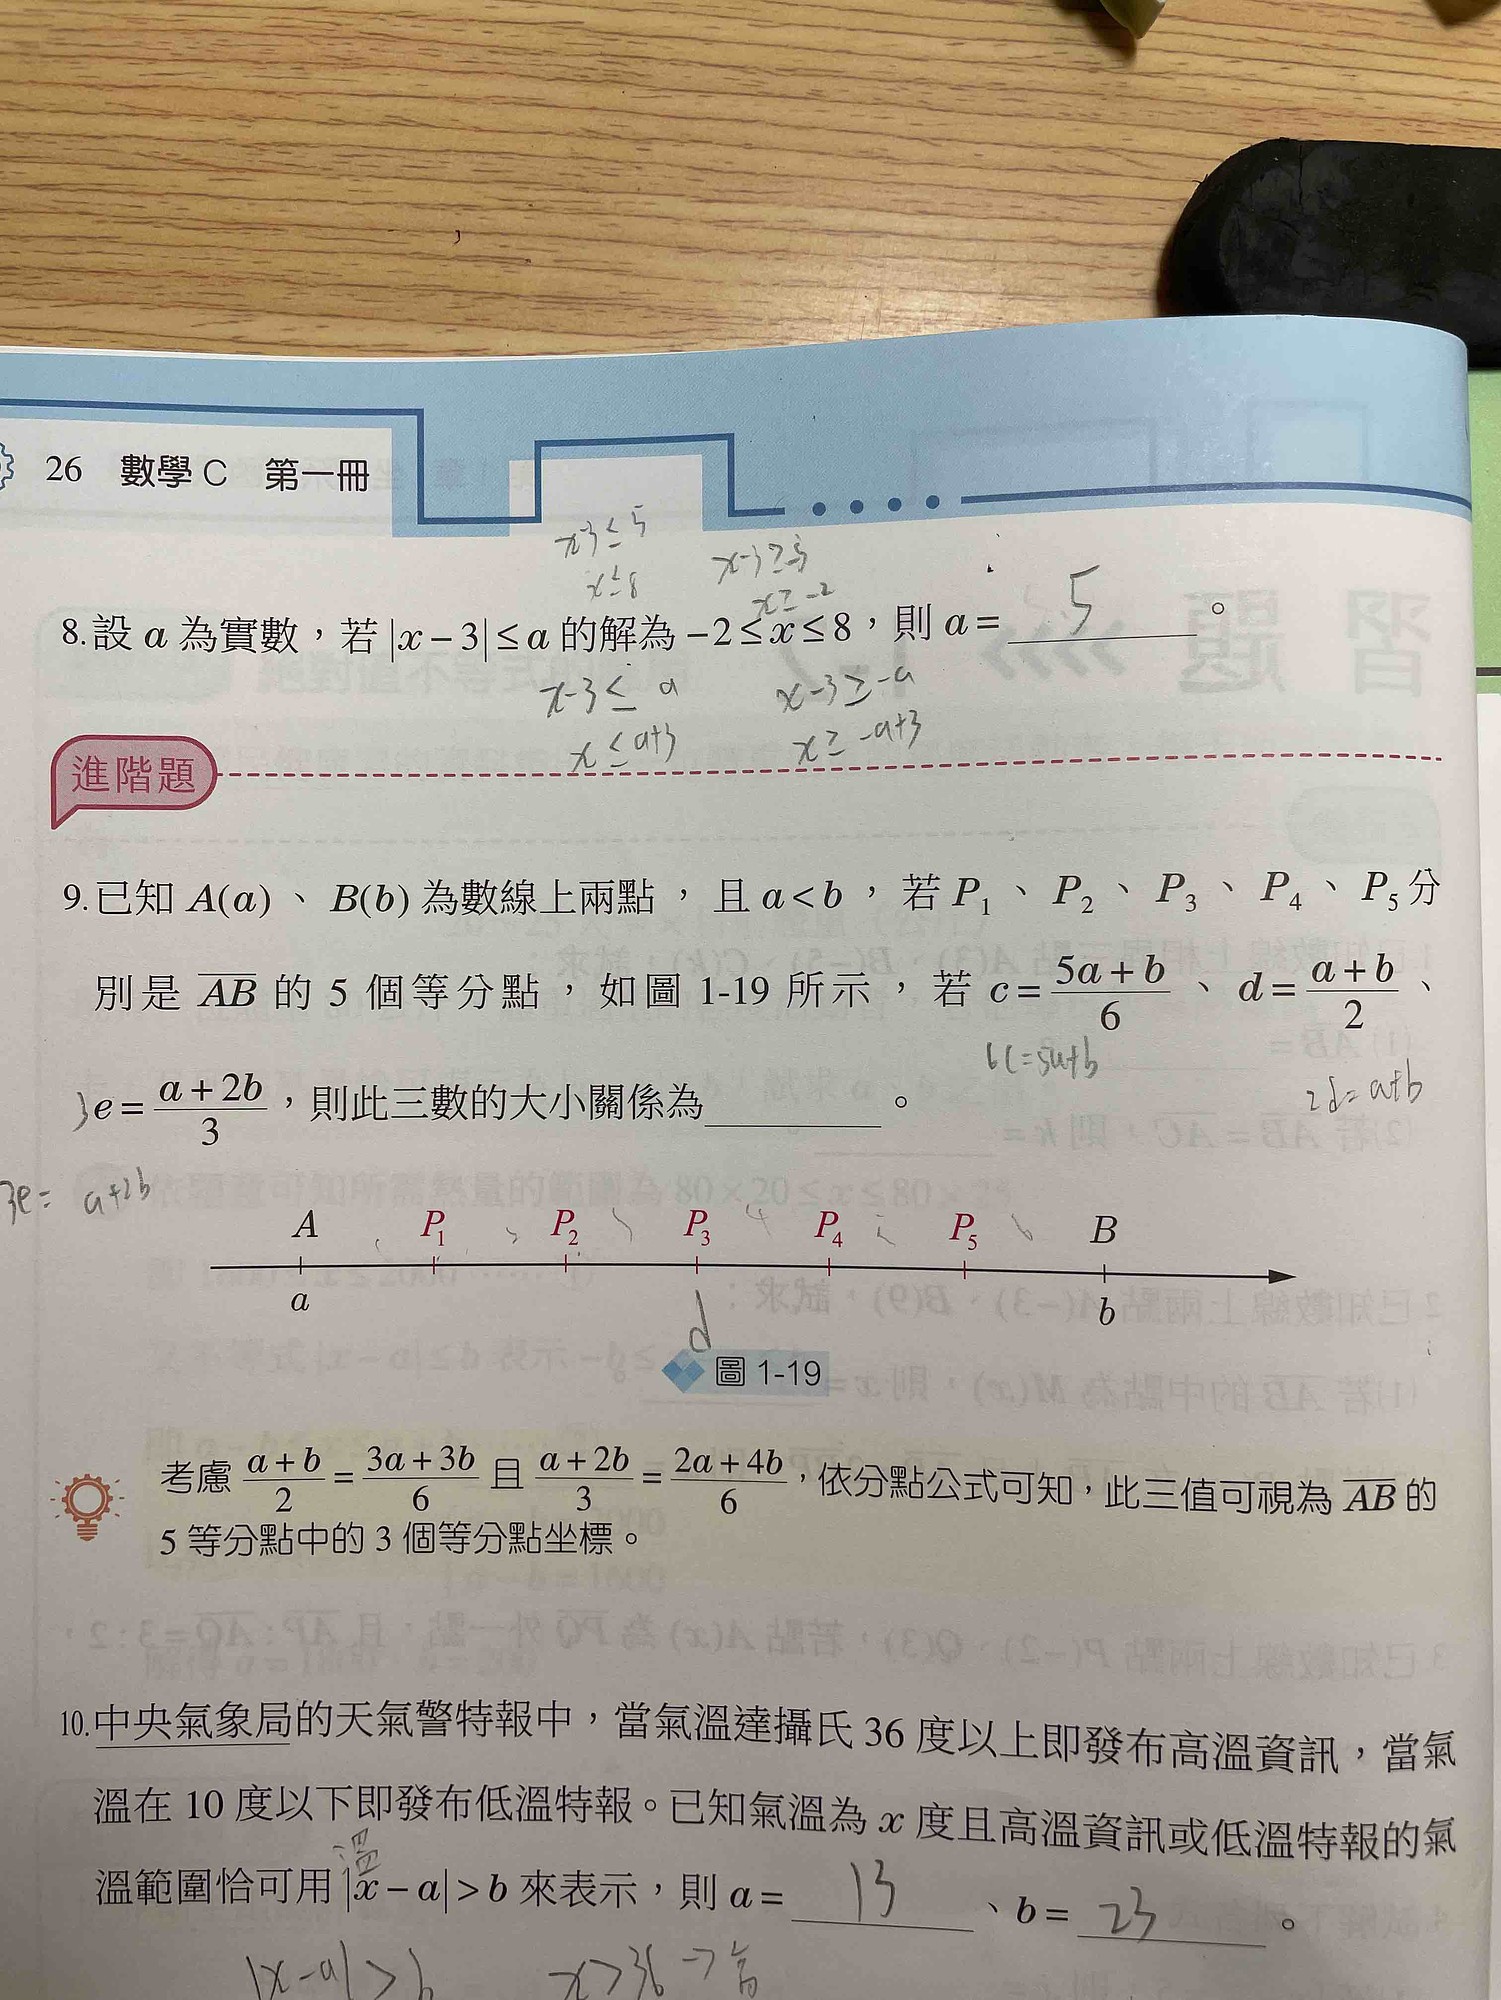 26 數學 C 第一冊
x-3≤5
x≤8
x≥-2
8.設 a 為實數，若 |x－3|≤a 的解為 －2≤x≤8，則 a= 5 。
x-3≤ a
x-3≥-a
x≤a+3
x≥-a+3
進階題
9.已知 A(a) 、 B(b) 為數線上兩點 ， 且 a<b ， 若 P₁ 、 P₂ 、 P₃ 、 P₄ 、 P₅ 分
別是 AB 的 5 個等分點，如圖 1-19 所示，若 c=(5a+b)/6 、 d=(a+b)/2 、
6c=5a+b
2d=a+b
e=(a+2b)/3，則此三數的大小關係為______。
3e= a+2b
A P₁ P₂ P₃ P₄ P₅ B
a b
d
圖 1-19
考慮 (a+b)/2=(3a+3b)/6 且 (a+2b)/3=(2a+4b)/6，依分點公式可知，此三值可視為 AB 的
5 等分點中的 3 個等分點坐標。
10.中央氣象局的天氣警特報中，當氣溫達攝氏 36 度以上即發布高溫資訊，當氣
溫在 10 度以下即發布低溫特報。已知氣溫為 x 度且高溫資訊或低溫特報的氣
溫
溫範圍恰可用 |x－a|>b 來表示，則 a= 13 、b= 23 。
|x-a|>b x>36→高